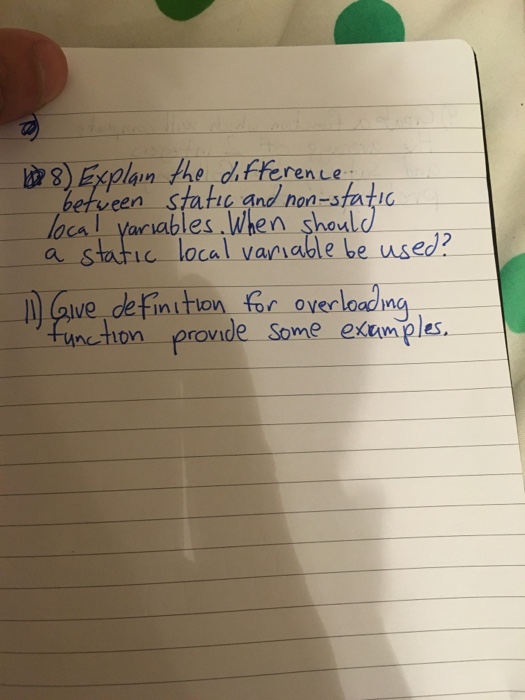 8) Explain the difference
between static and non-static
local variables. When should
a static local variable be used?
11) Give definition for overloading
function provide some examples.